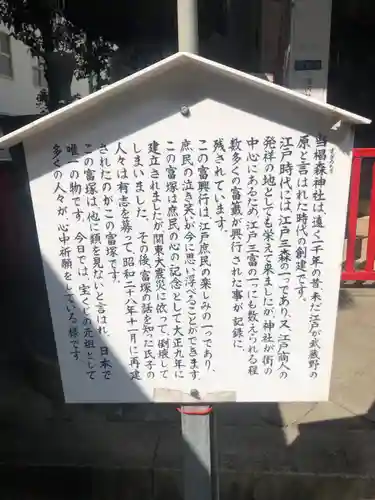 当椙森神社は、遠く一千年の昔未だ江戸が武蔵野の
原と言はれた時代の創建です。
江戸時代には、江戸三森の一つであり、又、江戸商人の
発祥の地としても栄えて来ましたが、神社が街の
中心にあるため、江戸三富の一つにも数えられる程
数多くの富籤が興行された事が記録に
残されています。
この富興行は、江戸庶民の楽しみの一つであり、
庶民の泣き笑いが今に思い浮べることができます。
この富塚は庶民の心の記念として大正九年に
建立されましたが関東大震災に依って、倒壊して
しまいました。その後、富塚の話を知った氏子の
人々は有志を募って、昭和二十八年十一月に再建
されたのがこの富塚です。
この富塚は、他に類を見ないと言はれ、日本で
唯一の物です。今日では、宝くじの元祖として
多くの人々が、心中祈願をしている様です